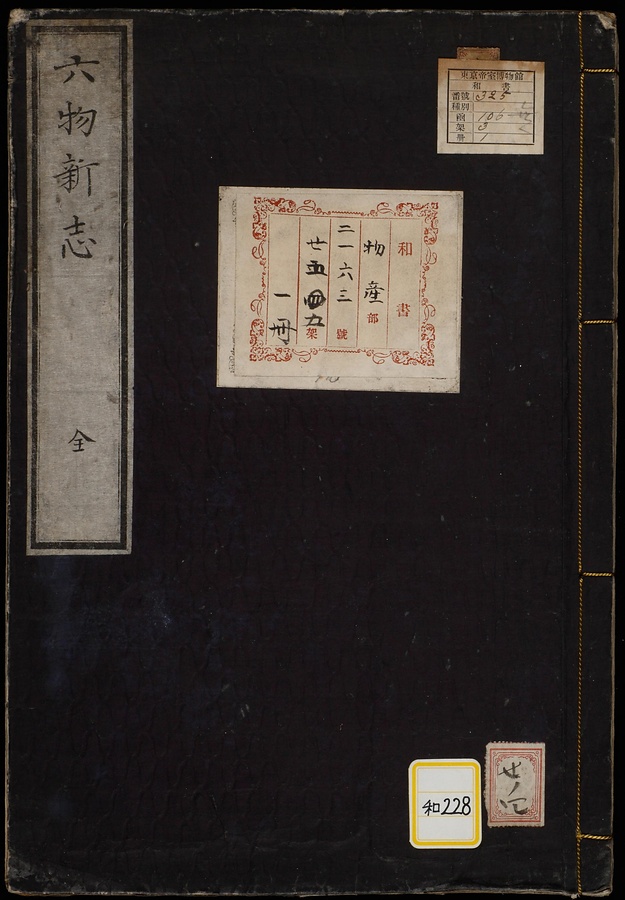 六物新志
全
東京帝室博物館
和書
番號 325
種別
凾 106
架 3
冊 1
和書
物産部
二一六三號
廿五 四五架
一冊
和228
廿ノ四